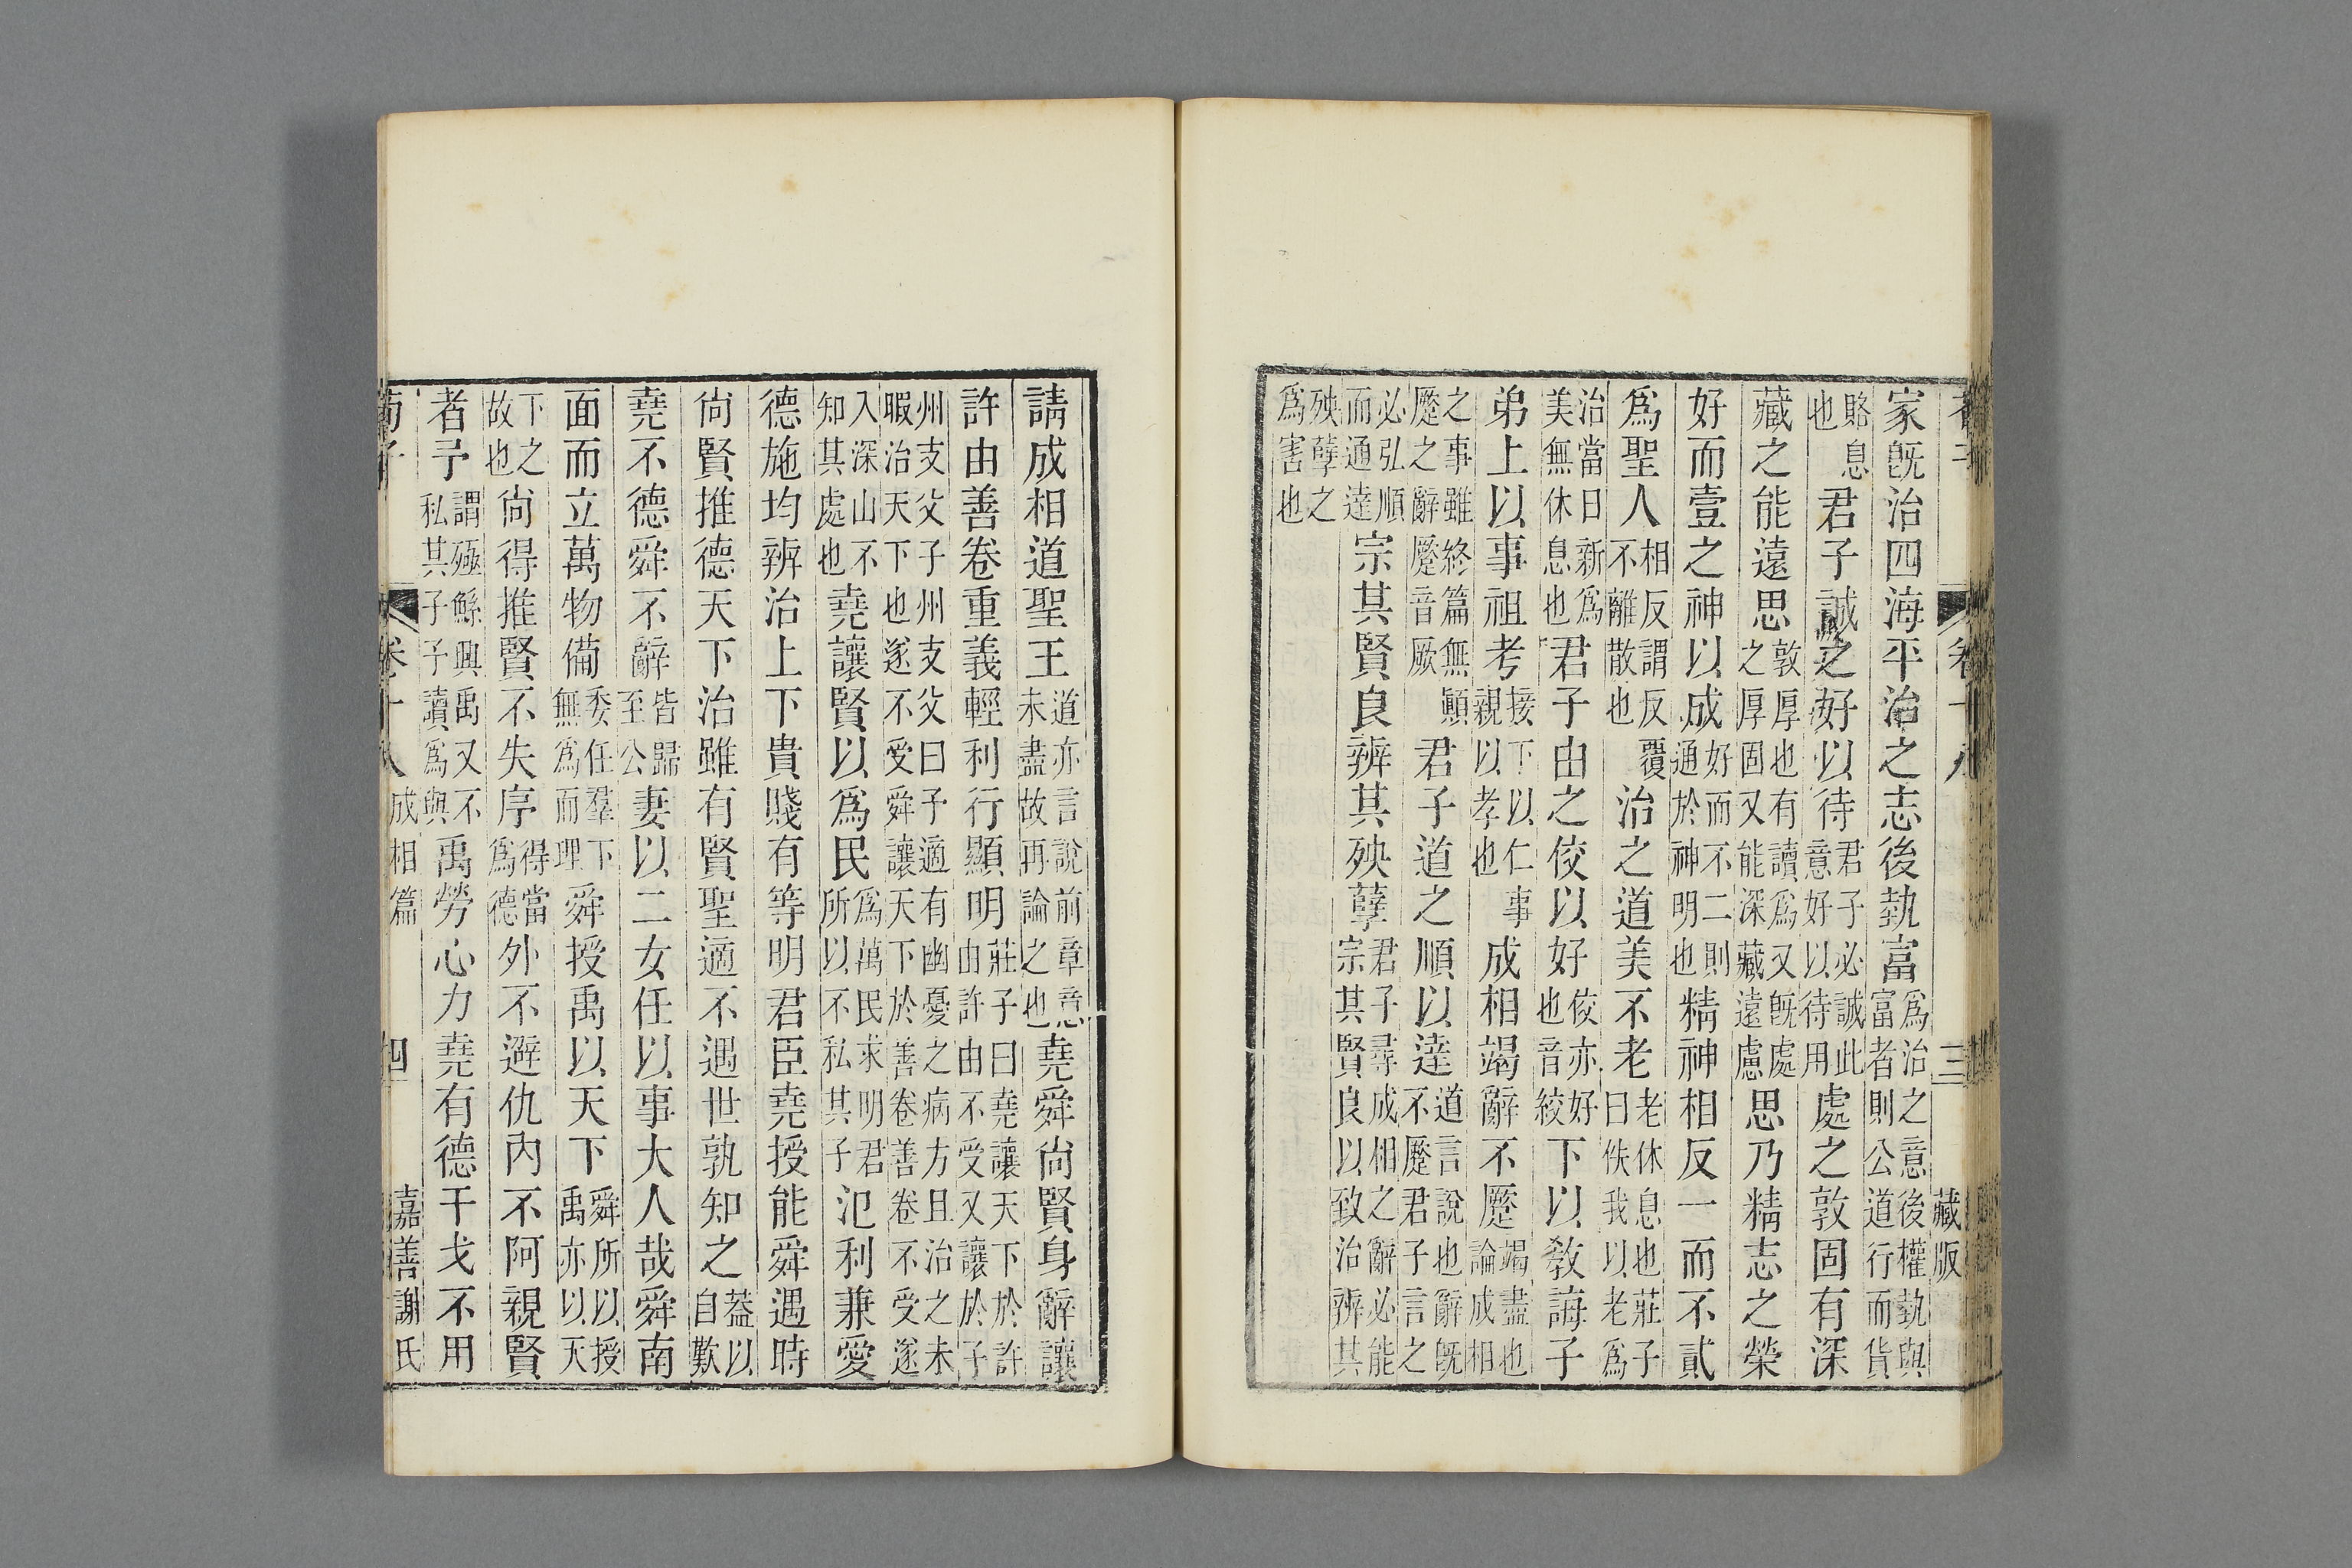 荀子 卷十八 三 藏版
家旣治四海平治之志後埶富爲治之意後權埶與富者則公道行而貨
賂息也君子誠之好以待君子必誠此意好以待用處之敦固有深
藏之能遠思敦厚也有讀爲又旣處之厚固又能深藏遠慮思乃精志之榮
好而壹之神以成好而不二則通於神明也精神相反一而不貳
爲聖人相反謂反覆不離散也治之道美不老老休息也莊子曰佚我以老爲
治當日新爲美無休息也君子由之佼以好佼亦好也音絞下以敎誨子
弟上以事祖考接下以仁事親以孝也成相竭辭不蹷竭盡也論成相
之事雖終篇無顚蹷之辭蹷音厥君子道之順以達道言說也辭旣不蹷君子言之
必弘順而通達宗其賢良辨其殃孽君子尋成相之辭必能宗其賢良以致治辨其
殃孽之爲害也
請成相道聖王道亦言說前章意未盡故再論之也堯舜尙賢身辭讓
許由善卷重義輕利行顯明莊子曰堯讓天下於許由許由不受又讓於子
州支父子州支父曰子適有幽憂之病方且治之未暇治天下也遂不受舜讓天下於善卷善卷不受遂
入深山不知其處也堯讓賢以爲民爲萬民求明君所以不私其子氾利兼愛
德施均辨治上下貴賤有等明君臣堯授能舜遇時
尙賢推德天下治雖有賢聖適不遇世孰知之蓋以自歎
堯不德舜不辭皆歸至公妻以二女任以事大人哉舜南
面而立萬物備委任羣下無爲而理舜授禹以天下舜所以授禹亦以天
下之故也尙得推賢不失序得當爲德外不避仇內不阿親賢
者予謂殛鯀興禹又不私其子子讀爲與禹勞心力堯有德干戈不用
荀子 卷十八 成相篇 四 嘉善謝氏